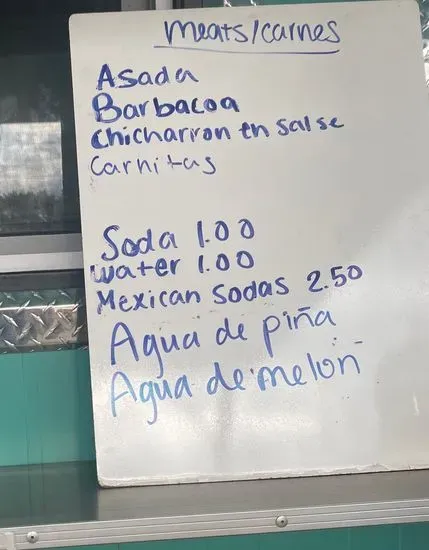 Meats/carnes
Asada
Barbacoa
Chicharron en salse
Carnitas
Soda 1.00
water 1.00
Mexican Sodas 2.50
Agua de piña
Agua de melon